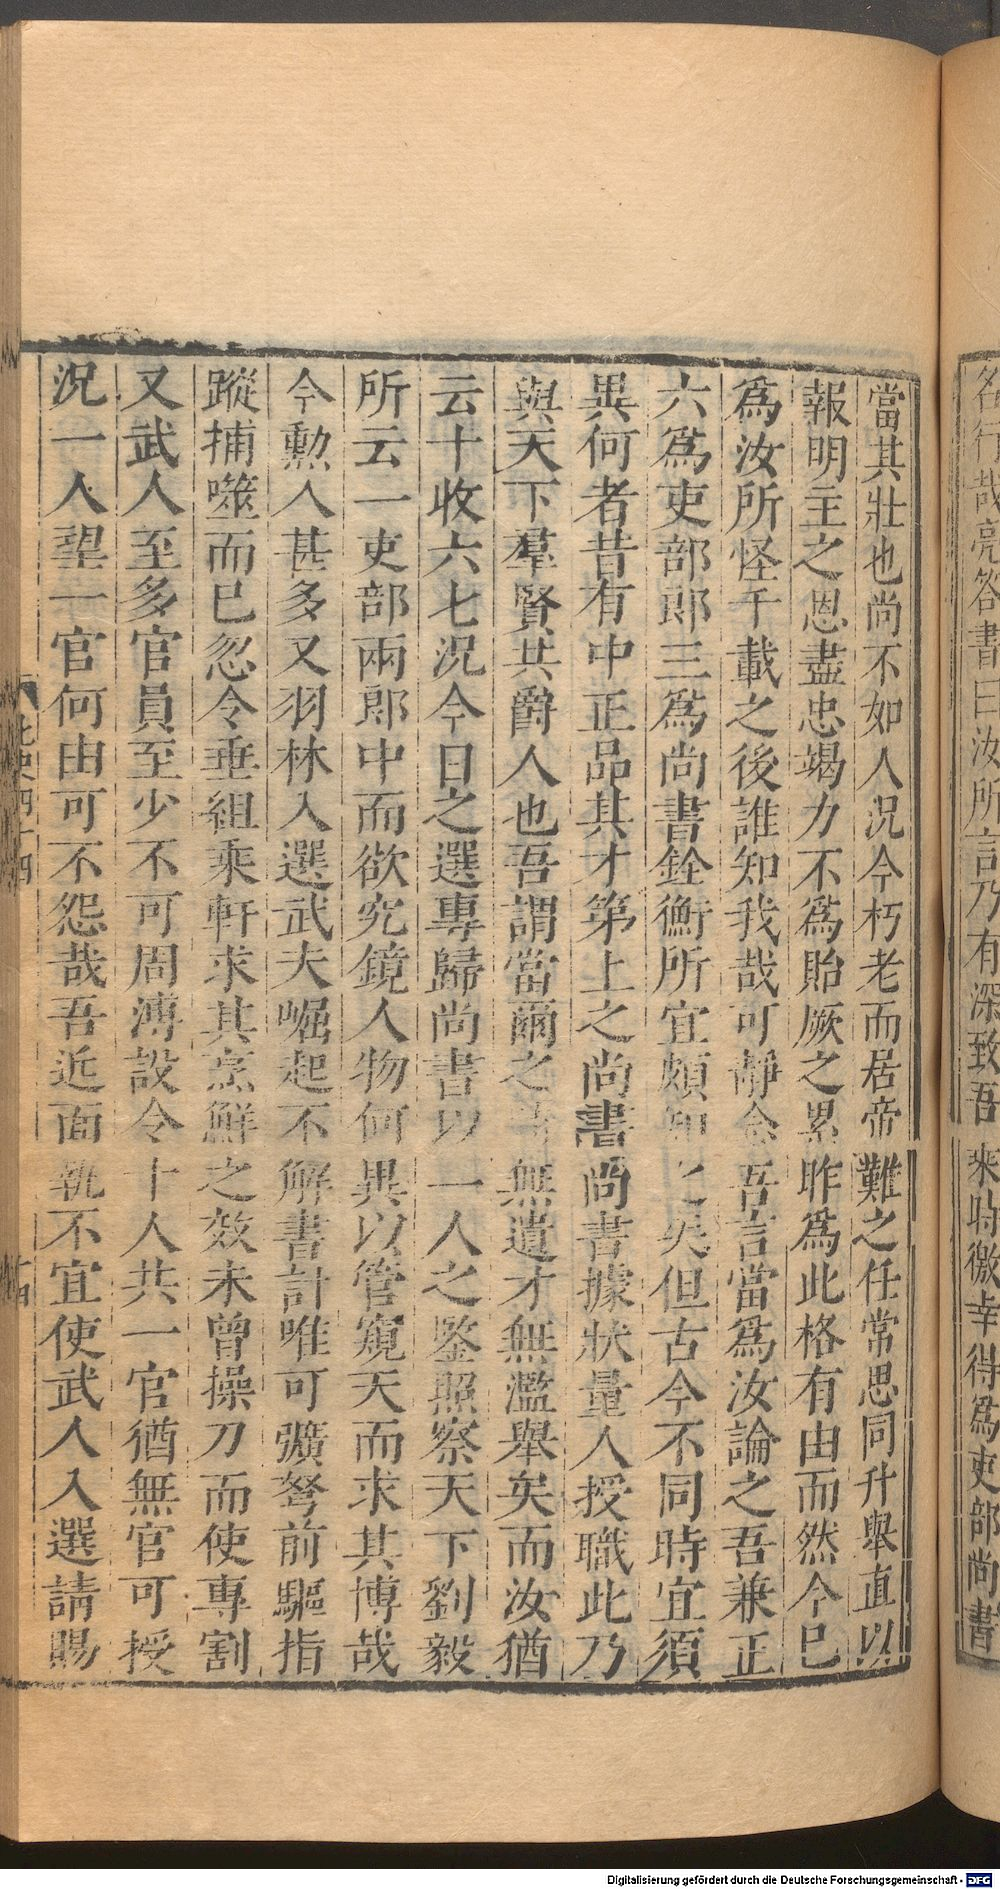 名行哉亮答書曰汝所言乃有深致吾乘時徼幸得爲吏部尚書
當其壯也尚不如人況今朽老而居帝難之任常思同升舉直以
報明主之恩盡忠竭力不爲貽厥之累昨爲此格有由而然今已
爲汝所怪千載之後誰知我哉可靜念吾言當爲汝論之吾兼正
六爲吏部郎三爲尚書銓衡所宜頗知之矣但古今不同時宜須
異何者昔有中正品其才第上之尚書尚書據狀量人授職此乃
與天下羣賢共爵人也吾謂當爾之時無遺才無濫舉矣而汝猶
云十收六七況今日之選專歸尚書以一人之鑒照察天下劉毅
所云一吏部兩郎中而欲究鏡人物何異以管窺天而求其博哉
今勲人甚多又羽林入選武夫崛起不解書計唯可彍弩前驅指
蹤捕噬而已忽令垂組乘軒求其烹鮮之效未曾操刀而使專割
又武人至多官員至少不可周溥設令十人共一官猶無官可授
況一人望一官何由可不怨哉吾近面執不宜使武人入選請賜
北史四十四
十四
Digitalisierung gefördert durch die Deutsche Forschungsgemeinschaft - DFG